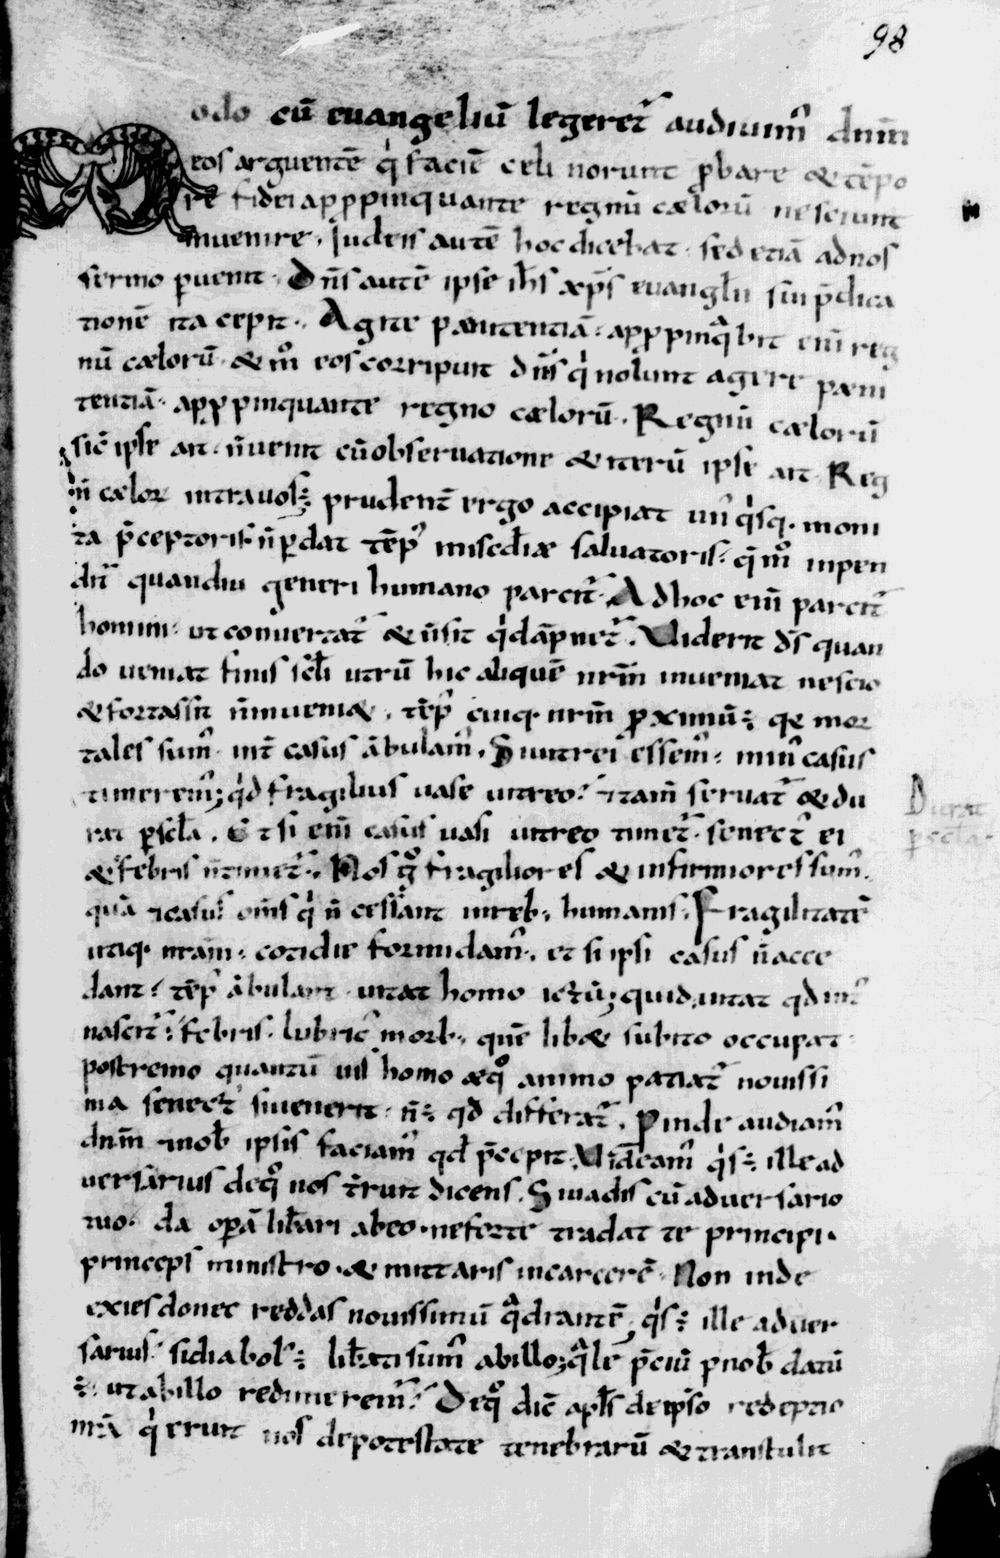 98
odo cū evangeliū legeret᷒ audiuim᷒ dnm̄
eos arguentē q̇ faciē celi norunt ꝓbare & tēpo
re fidei apꝓpinquante regnū cælorū nesciunt
invenire. Judeis autē hoc dicebat. sed etiā ad nos
sermo ꝑvenit. Dn̄s autē ipse ih̄s xp̄s evangl̄ii sui p̄dica
tionē ita cepit. Agite pænitentiā. apꝓpinq̇bit eni᷒ reg
nū cælorū. & m̊ eos corripuit dn̄s q̇ nolunt agere pæni
tentiā. apꝓpinquante regno cælorū. Regnū cælorū
sic̄ ipse ait. n̄ venit cū observatione & iterū ipse ait Reg
n̄ cælor intra vos ÷ prudent᷒ ergo accipiat un᷒ q̇sq. moni
ta p̄ceptoris. n̄ ꝑdat tēp᷒ misc̄diæ salvatoris. q̄ m̊ inpen
dit᷒ quandiu generi humano parcit᷒. Ad hoc eni᷒ parcit᷒
homini. ut convertat᷒ & n̄ sit q̇ dāpnet᷒. Viderit d̄s quan
do veniat finis sc̄li utrū hic aliquē nrm̄ inveniat nescio
& fortassit n̄ inveniæ. tēp᷒ cuiq. nrm̄ ꝓximū ÷ q̨ mor
tales sum᷒. int᷒ casus ābulam᷒. Si vitrei essem᷒. min᷒ casus
timerem᷒; q̇d fragilius vase vitreo? & tam̄ servat᷒ & du
rat ꝑ sc̄la. Et si eni᷒ casus vasi vitreo timet᷒. senect᷒ ei
& febris n̄ timet᷒. Nos g̊ fragiliores & infirmiores sum᷒.
quā & casus om̄s q̇ n̄ cessant in reb. humanis. Fragilitatē
utiq. nrām. cotidie formidam᷒. et si ipsi casus n̄ acce
dant. tēp᷒ ābulant. vitat homo ictū; quid vitat qd int᷒
nascit᷒. febris. lubric᷒ morb. quē libæ subito occupat.
postremo quantū vis homo æq̊ animo patiat᷒ novissi
ma senect᷒ si venerit. n̄ ÷ qd differat᷒. Proinde audiam᷒
dnm̄ & inob̄ ipsis faciam᷒ qd p̄cepit. Videam᷒ q̇s ÷ ille ad
versarius de q̊ nos t̄rruit dicens. Si vadis cū adversario
tuo. da opā lib̄ari ab eo. ne forte tradat te principi.
princeps ministro. & mittaris in carcerē. Non inde
exies donec reddas novissimū q̇drantē; q̇s ÷ ille adver
sarius. si diabol᷒ ÷ lib̄ati sum᷒ ab illo; q̇le p̄ciū ꝓ nob̄ datū
÷. ut ab illo redimerem᷒. De q̊ dic̄ apl̄s de ipso redeptio
nrā q̇ eruit nos de potestate tenebrarū & transtulit
Durat
ꝑ scla.